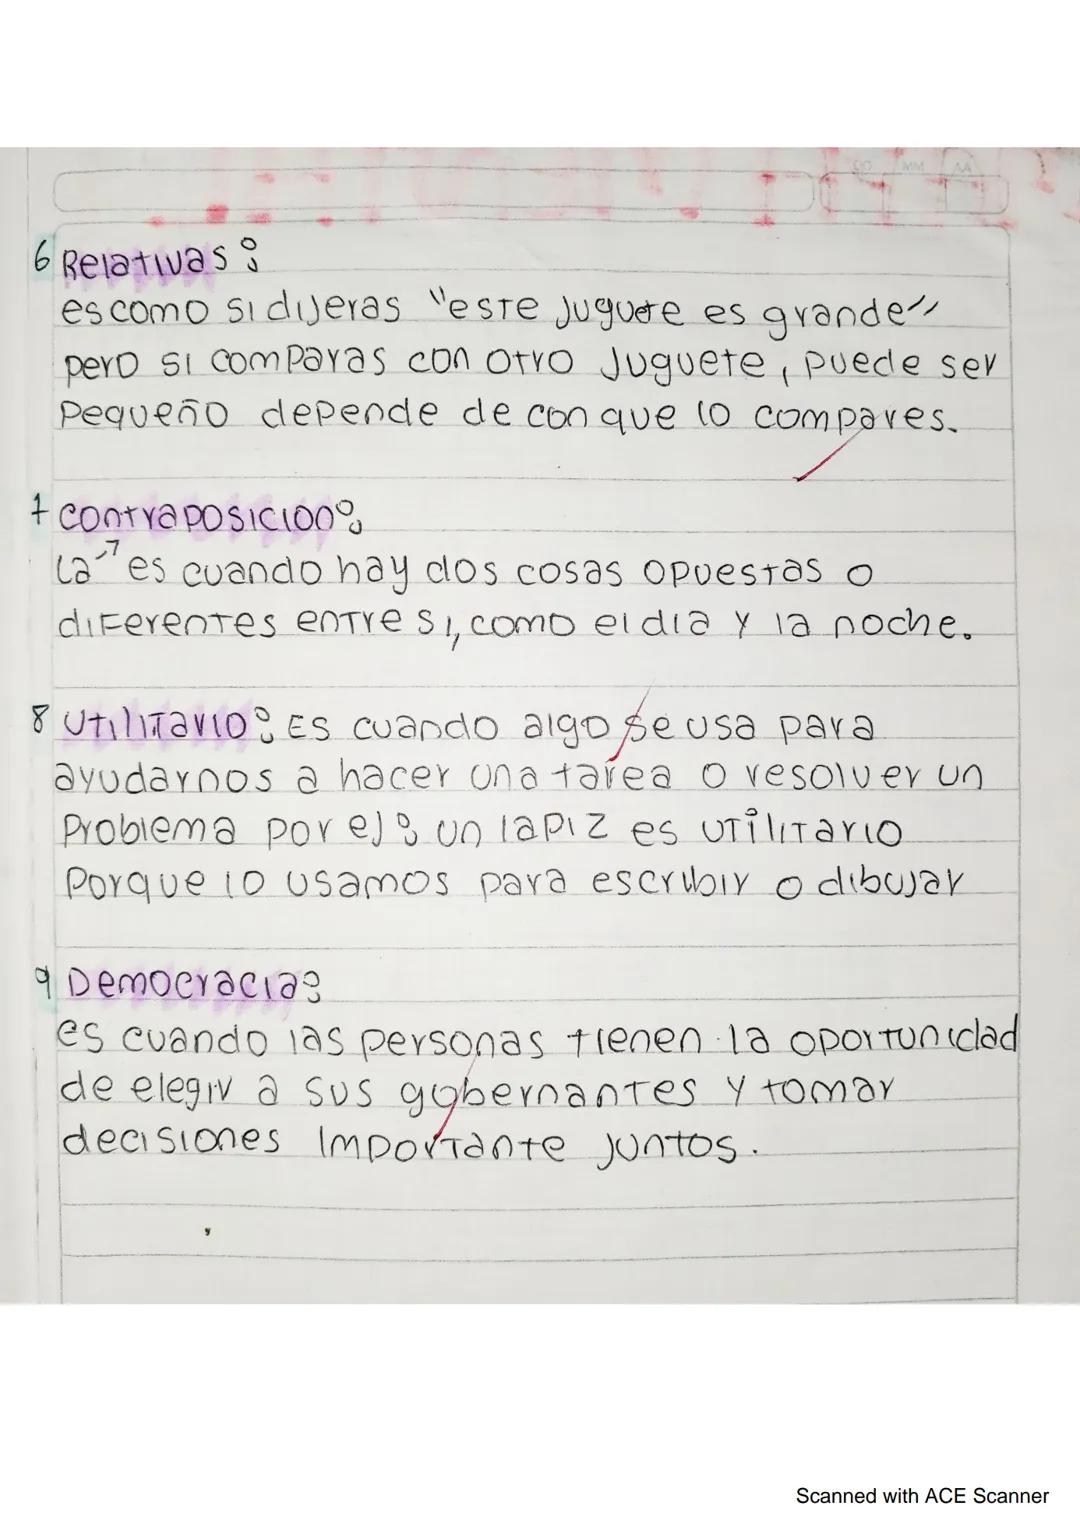 DD MM AA
6 Relativas:
es como si dijeras "este juguete es grande"
pero si comparas con otro juguete, puede ser
pequeño depende de con que lo compares.
7 Contraposicion:
La es cuando hay dos cosas opuestas o
diferentes entre si, como el dia y la noche.
8 Utilitario: Es cuando algo se usa para
ayudarnos a hacer una tarea o resolver un
problema por ej: un lapiz es utilitario
porque lo usamos para escribir o dibujar
9 Democracia:
es cuando las personas tienen la oportunidad
de elegir a sus gobernantes y tomar
decisiones importante juntos.
Scanned with ACE Scanner